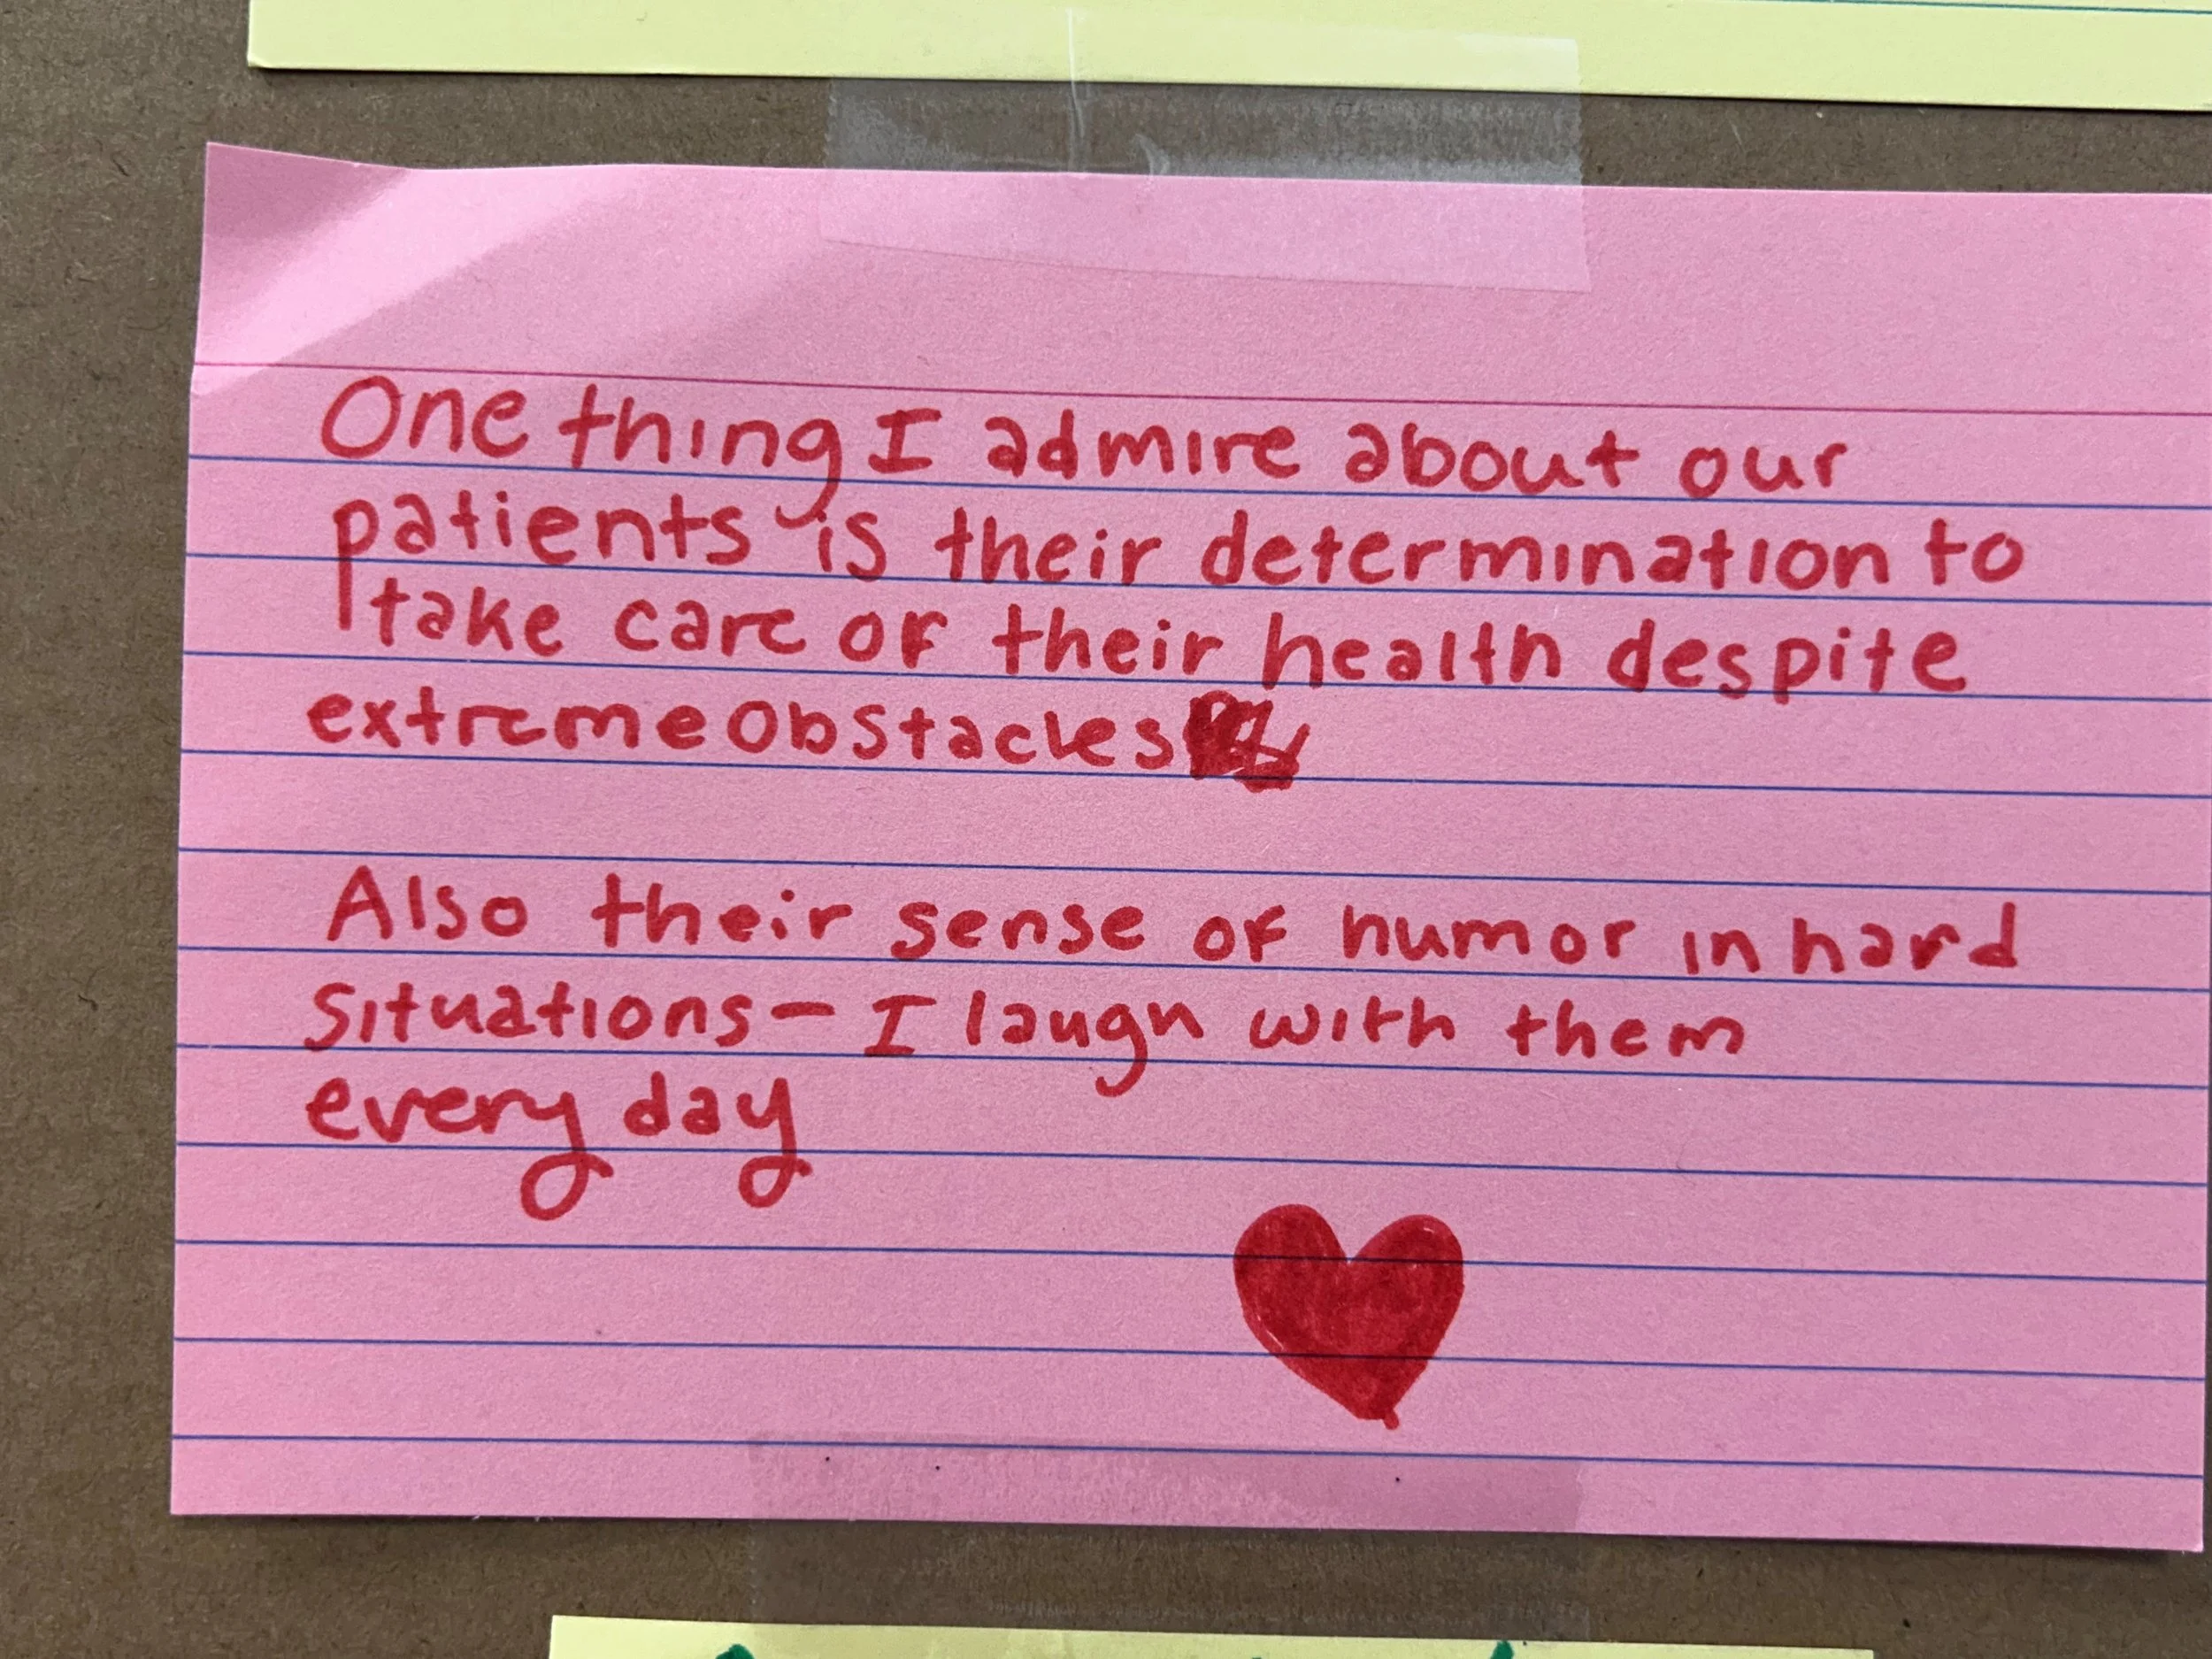 One thing I admire about our
patients is their determination to
take care of their health despite
extreme obstacles
Also their sense of humor in hard
situations — I laugh with them
every day